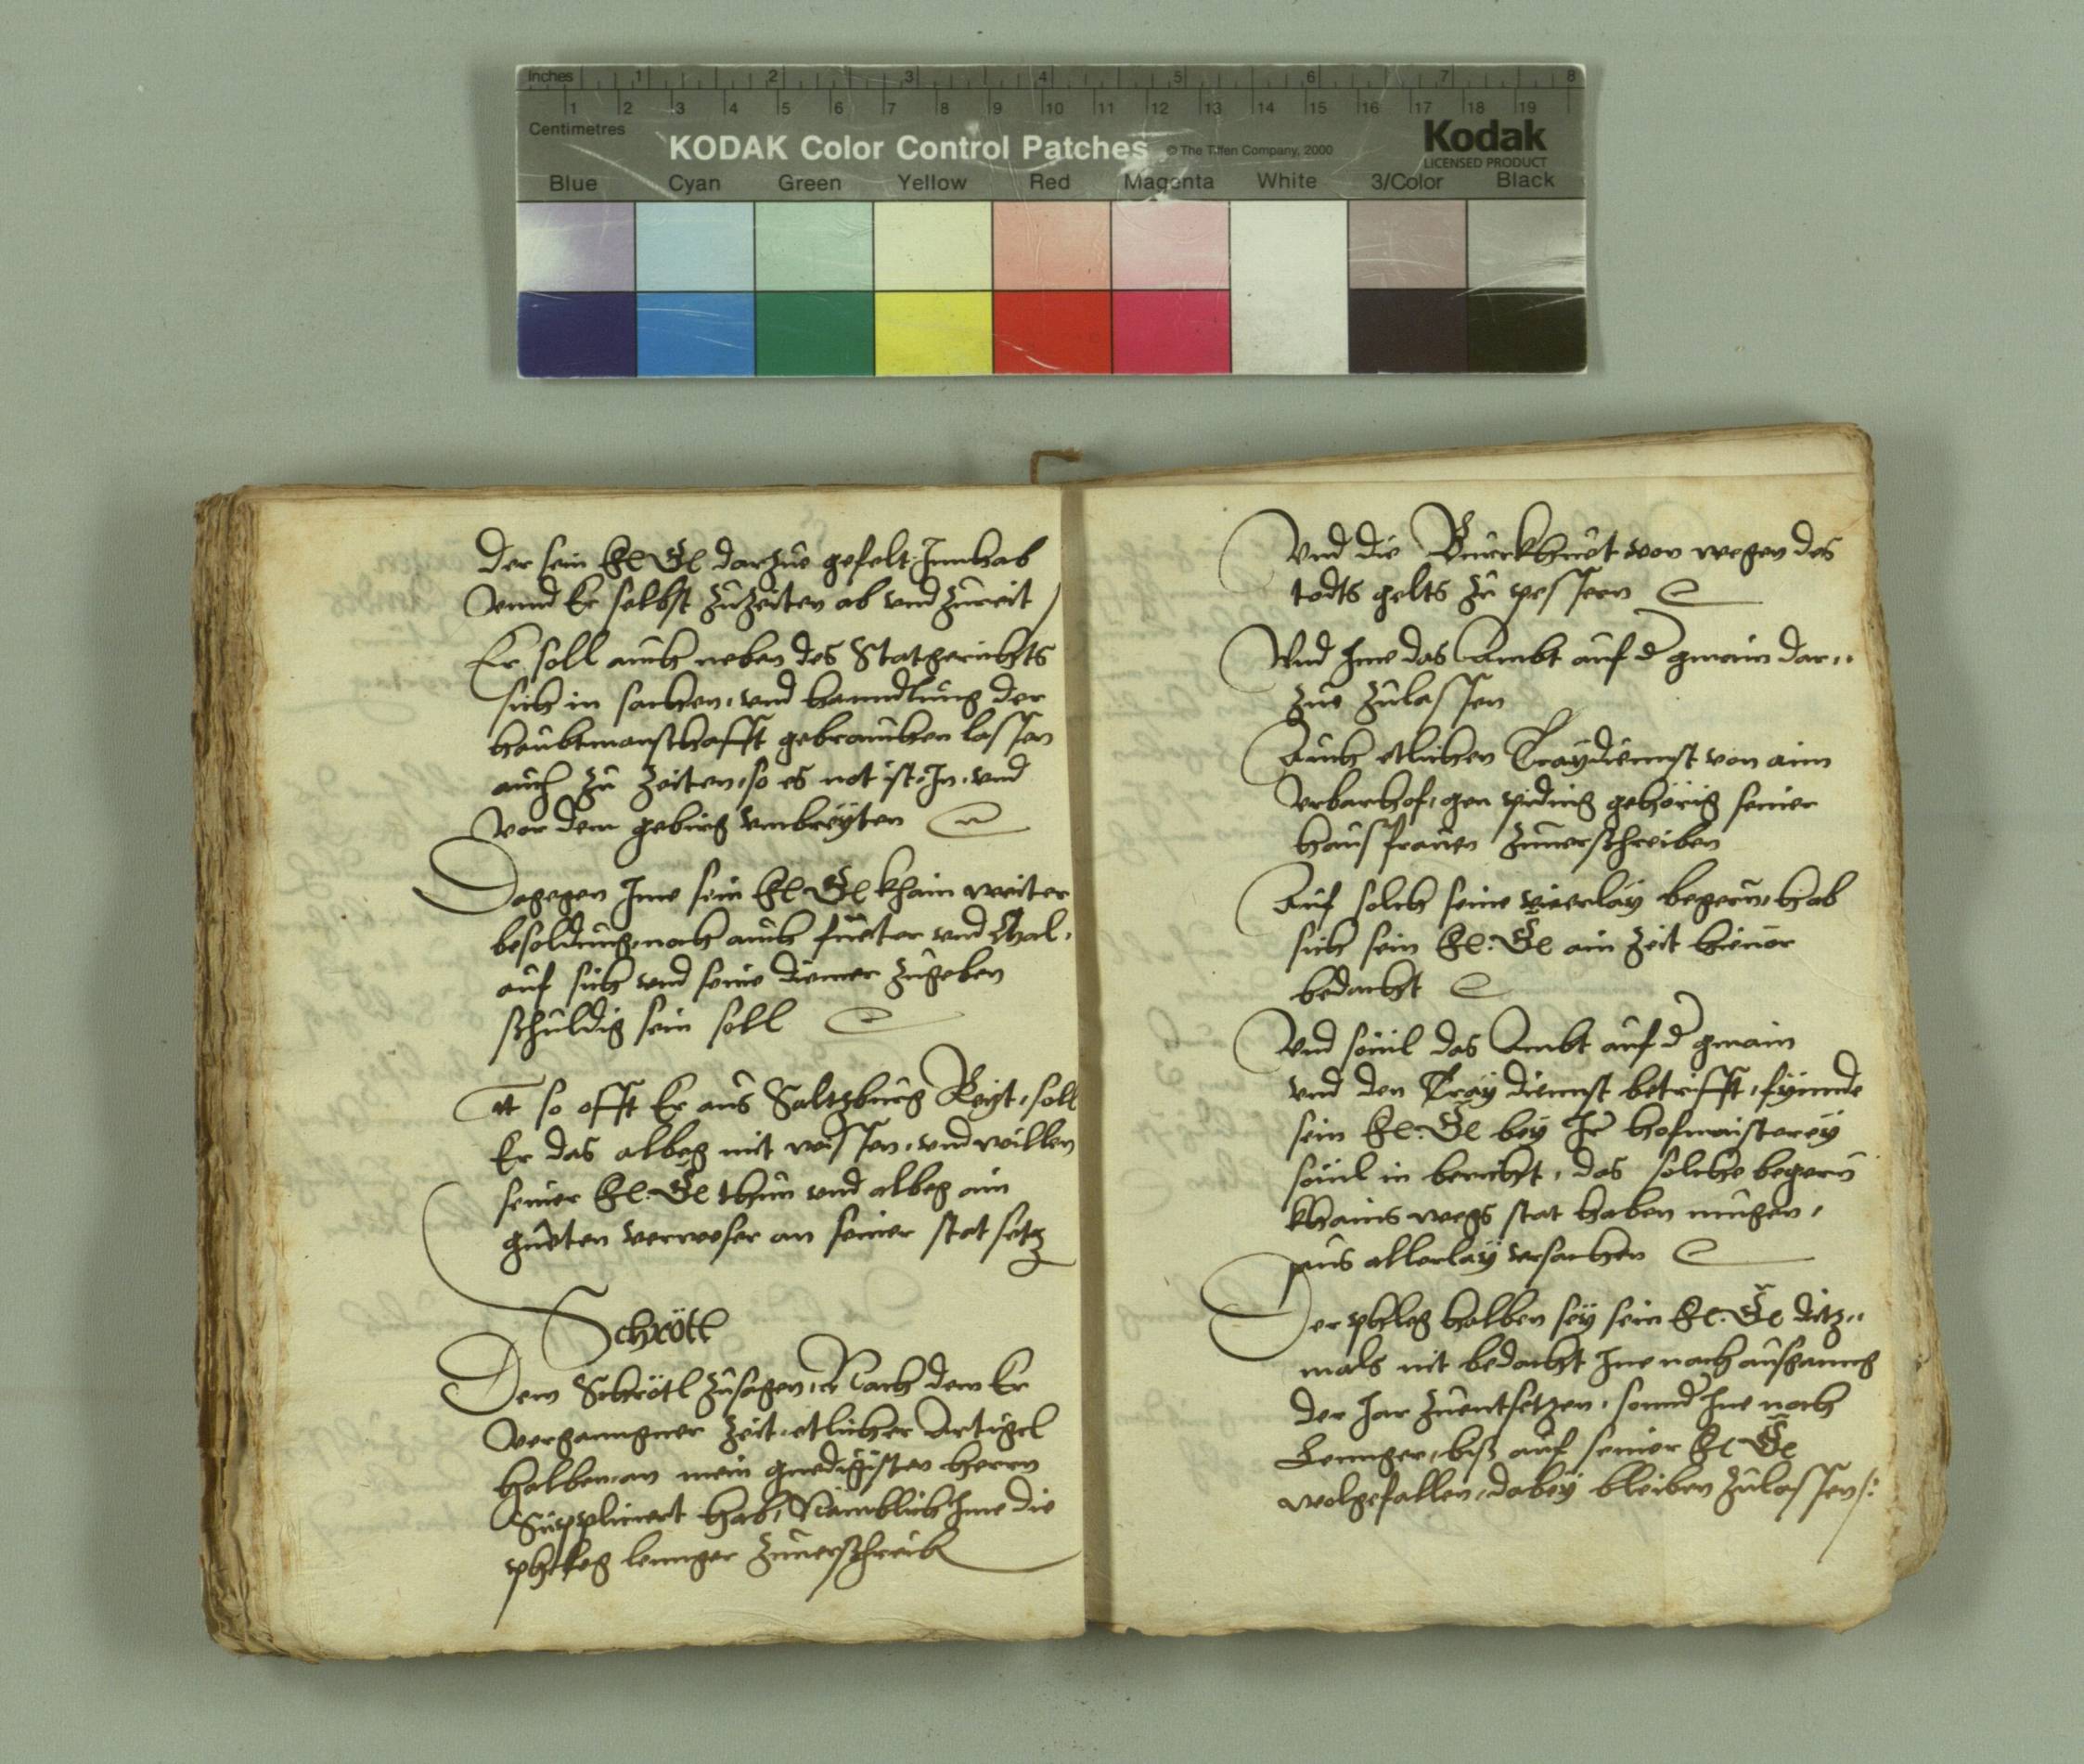 Inches 1 2 3 4 5 6 7 8
1 2 3 4 5 6 7 8 9 10 11 12 13 14 15 16 17 18 19
Centimetres
KODAK Color Control Patches © The Tiffen Company, 2000 Kodak
LICENSED PRODUCT
Blue Cyan Green Yellow Red Magenta White 3/Color Black
der sein f̃l G̃l darzue gefelt, Innhab
vnnd Er selbst zuzeiten ab vnd zureit
Er soll auch neben des Statgerichts
sich in sachen, vnd hanndlung der
haubtmanschafft gebrauchen lassen
auch zu zeiten, so es not ist, In, vnd
vor dem gebirg vmbreyten
Dagegen Ime sein f̃l G̃l khain weiter
besoldung, noch auch fueter vnd Mal,
auf sich vnd seine diener zugeben
schuldig sein soll
It so offt Er aus Saltzburg Reyt, soll
Er das albeg mit wissen, vnd willen
seiner f̃l. G̃l thun vnd albeg ain
gueten verweser an seiner stat setz
Schrötl
Dem Schrötl zusagen, Nach dem Er
verganngner zeit, etlicher Artigcl
halben, an mein gnedigisten herrn
Suppliciert hab, Nämblich Ime die
phleg lennger zuuerschreib
Vnd die Purckhuet von wegen des
todts gelts zu pessern
Vnd Ime das Ambt auf d gmain dar,,
zue zulassen
Auch etlichen Traydiennst von aim
vrbarhof, gen gehörig seiner
hausfrauen zuuerschreiben
Auf solch seine vierlay begern, hab
sich sein f̃l. G̃l ain zeit hieuor
bedacht
Vnd souil das Ambt auf d gmain
vnd den Tray diennst betrifft, fynnde
sein f̃l. G̃l bey Ir hofmaisterey
souil in bericht, das solche begern
khains wegs stat haben mugen,
aus allerlay vrsachen
Der phleg halben sey sein f̃l. G̃l ditz,,
mals nit bedacht Ime nach ausganng
der Jar zuentsetzen, sonnd Ine noch
Lennger, biß auf seiner f̃l G̃l
wolgefallen, dabey bleiben zulassen